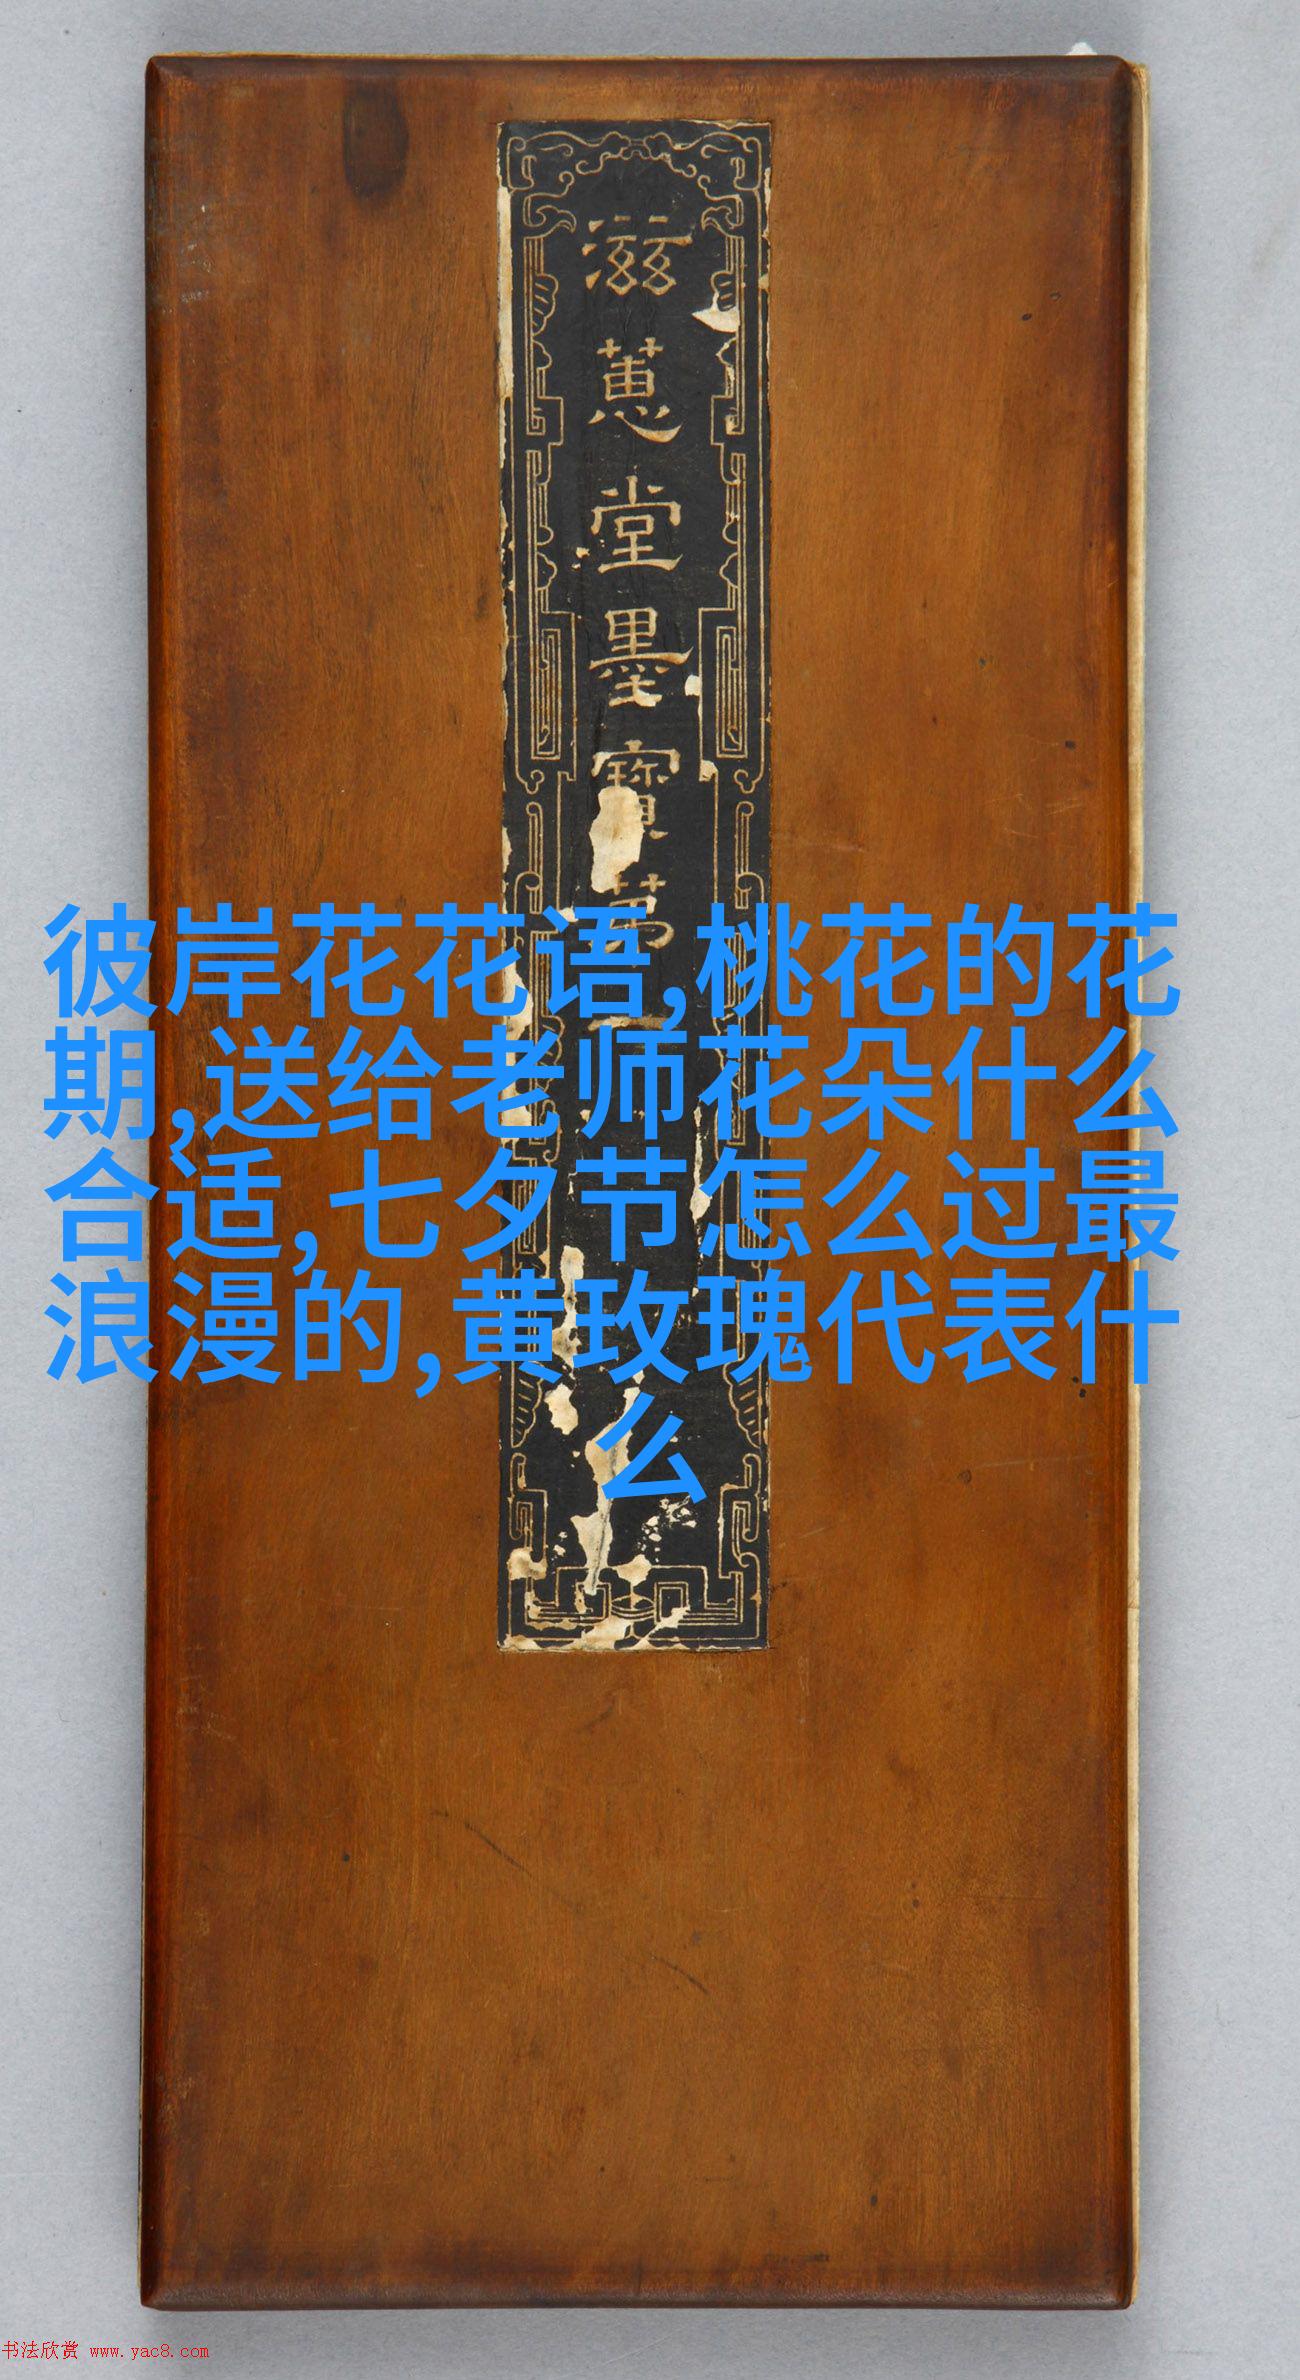 滋蕙堂墨寶第一
彼岸花花语,桃花的花
期,送给老师花朵什么
合适,七夕节怎么过最
浪漫的,黄玫瑰代表什
么
书法欣赏 www.yac8.com